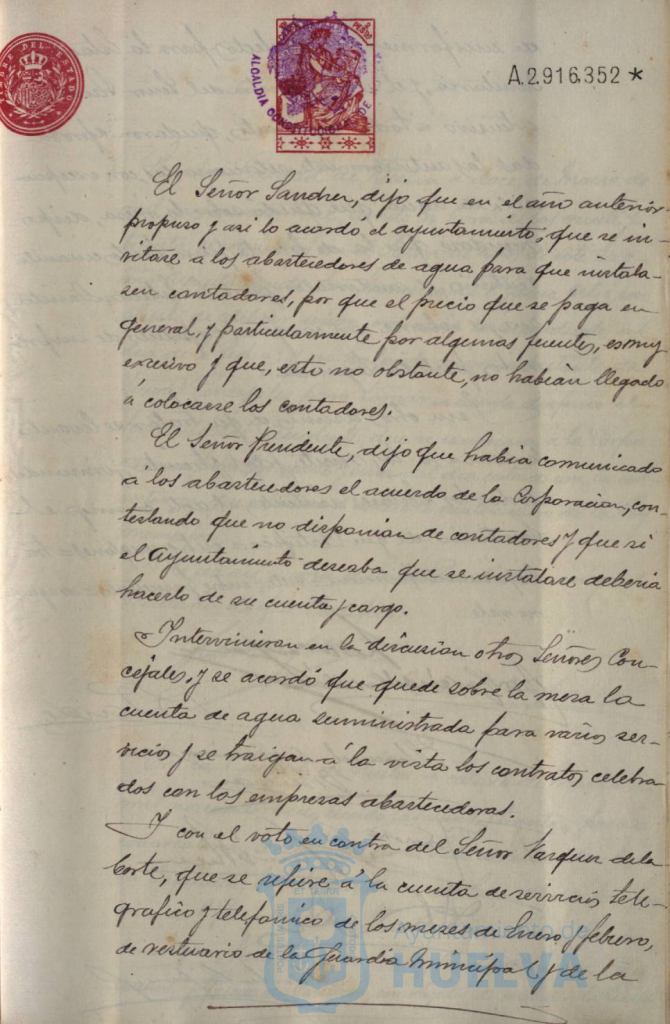 A.2.916.352 *
ALCALDIA CONSTITUCIONAL DE
El Señor Sandrer, dijo que en el año anterior
propuso y asi lo acordó el ayuntamiento, que se in-
vitase a los abastecedores de agua para que instala-
sen contadores, por que el precio que se paga en
general, y particularmente por algunas fuentes, es muy
excesivo y que, esto no obstante, no habian llegado
á colocarse los contadores.
El Señor Presidente, dijo que habia comunicado
á los abastecedores el acuerdo de la Corporacion, con-
testando que no disponian de contadores y que si
el Ayuntamiento deseaba que se instalase deberia
hacerlo de su cuenta y cargo.
Intervinieron en la discusion otros Señores Con-
cejales, y se acordó que quede sobre la mesa la
cuenta de agua suministrada para varios ser-
vicios y se traigan á la vista los contratos celebra-
dos con las empresas abastecedoras.
Y con el voto en contra del Señor Vazquez de la
Corte, que se refiere á la cuenta de servicios tele-
grafico y telefonico de los meses de Enero y febrero,
de vestuario de la Guardia Municipal y de la
Ayuntamiento de
HUELVA